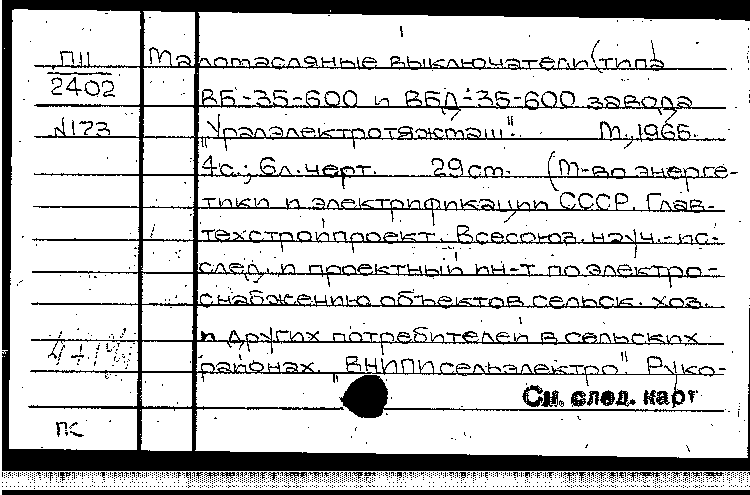 П11
2402
N173
Маломасляные выключатели (типа
ВБ-35-600 и ВБД-35-600 завода
"Уралэлектротяжмаш". М., 1965.
4с.; 6л. черт. 29см. (М-во энерге-
тики и электрификации СССР. Глав-
техстройпроект. Всесоюз. науч.-ис-
след. и проектный ин-т по электро-
снабжению объектов сельск. хоз.
и других потребителей в сельских
районах. "ВНИПИсельэлектро". Руко-
См. след. карт
ПК